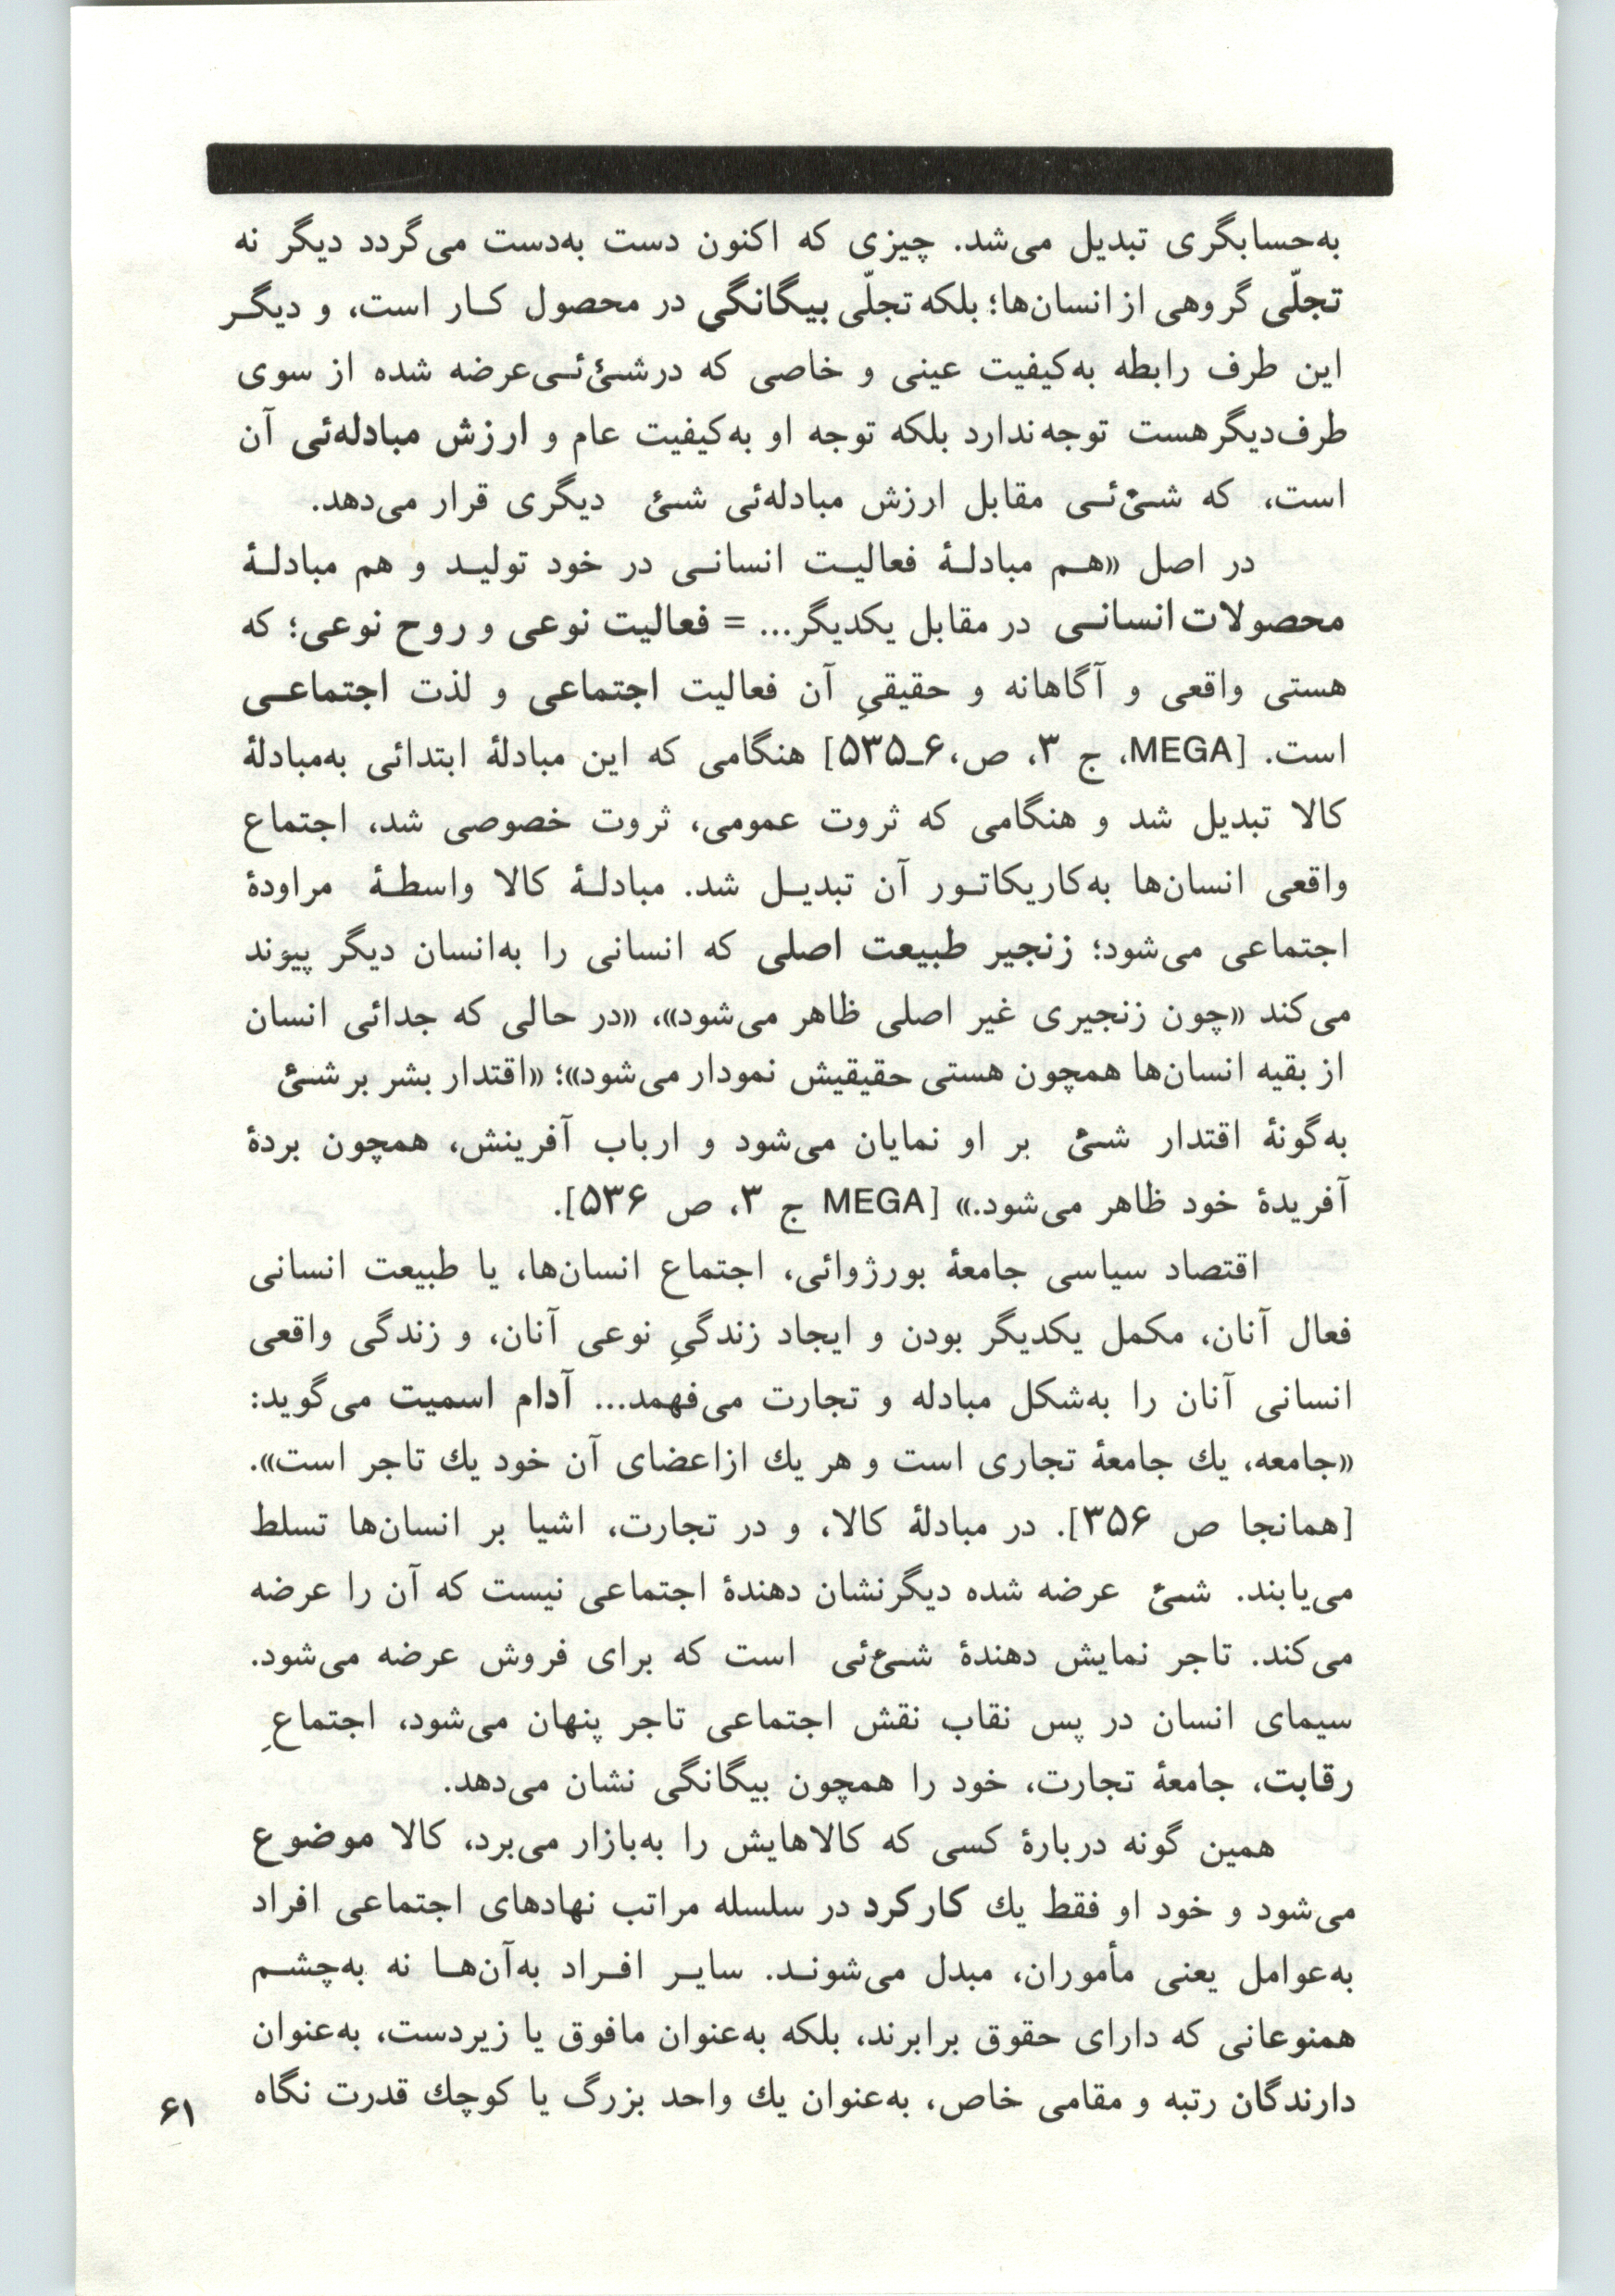 به‌حسابگری تبدیل می‌شد. چیزی که اکنون دست به‌دست می‌گردد دیگر نه
تجلّی گروهی از انسان‌ها؛ بلکه تجلّی بیگانگی در محصول کـار است، و دیگـر
این طرف رابطه به‌کیفیت عینی و خاصی که در شـئ‌ئـی عرضه شده از سوی
طرف‌دیگر هست توجه ندارد بلکه توجه او به‌کیفیت عام و ارزش مبادله‌ئی آن
است، که شـئ‌ئـی مقابل ارزش مبادله‌ئی شـئ دیگری قرار می‌دهد.
در اصل «هـم مبادلـهٔ فعالیـت انسانـی در خود تولیـد و هم مبادلـهٔ
محصولات انسانـی در مقابل یکدیگر... = فعالیت نوعی و روح نوعی؛ که
هستی واقعی و آگاهانه و حقیقیِ آن فعالیت اجتماعی و لذت اجتماعـی
است. [MEGA، ج ۳، ص، ۶ـ۵۳۵] هنگامی که این مبادلهٔ ابتدائی به‌مبادلهٔ
کالا تبدیل شد و هنگامی که ثروت عمومی، ثروت خصوصی شد، اجتماع
واقعی انسان‌ها به‌کاریکاتـور آن تبدیـل شد. مبادلـهٔ کالا واسطـهٔ مراودهٔ
اجتماعی می‌شود؛ زنجیر طبیعت اصلی که انسانی را به‌انسان دیگر پیوند
می‌کند «چون زنجیری غیر اصلی ظاهر می‌شود»، «در حالی که جدائی انسان
از بقیه انسان‌ها همچون هستی حقیقیش نمودار می‌شود»؛ «اقتدار بشر بر شـئ
به‌گونهٔ اقتدار شـئ بر او نمایان می‌شود و ارباب آفرینش، همچون بردهٔ
آفریدهٔ خود ظاهر می‌شود.» [MEGA ج ۳، ص ۵۳۶].
اقتصاد سیاسی جامعهٔ بورژوائی، اجتماع انسان‌ها، یا طبیعت انسانی
فعال آنان، مکمل یکدیگر بودن و ایجاد زندگیِ نوعی آنان، و زندگی واقعی
انسانی آنان را به‌شکل مبادله و تجارت می‌فهمد... آدام اسمیت می‌گوید:
«جامعه، یك جامعهٔ تجاری است و هر یك ازاعضای آن خود یك تاجر است».
[همانجا ص ۳۵۶]. در مبادلهٔ کالا، و در تجارت، اشیا بر انسان‌ها تسلط
می‌یابند. شـئ عرضه شده دیگرنشان دهندهٔ اجتماعی نیست که آن را عرضه
می‌کند. تاجر نمایش دهندهٔ شـئ‌ئی است که برای فروش عرضه می‌شود.
سیمای انسان در پس نقاب نقش اجتماعی تاجر پنهان می‌شود، اجتماعِ
رقابت، جامعهٔ تجارت، خود را همچون بیگانگی نشان می‌دهد.
همین گونه دربارهٔ کسی که کالاهایش را به‌بازار می‌برد، کالا موضوع
می‌شود و خود او فقط یك کارکرد در سلسله مراتب نهادهای اجتماعی افراد
به‌عوامل یعنی مأموران، مبدل می‌شونـد. سایـر افـراد به‌آن‌هـا نه به‌چشـم
همنوعانی که دارای حقوق برابرند، بلکه به‌عنوان مافوق یا زیردست، به‌عنوان
دارندگان رتبه و مقامی خاص، به‌عنوان یك واحد بزرگ یا کوچك قدرت نگاه
۶۱